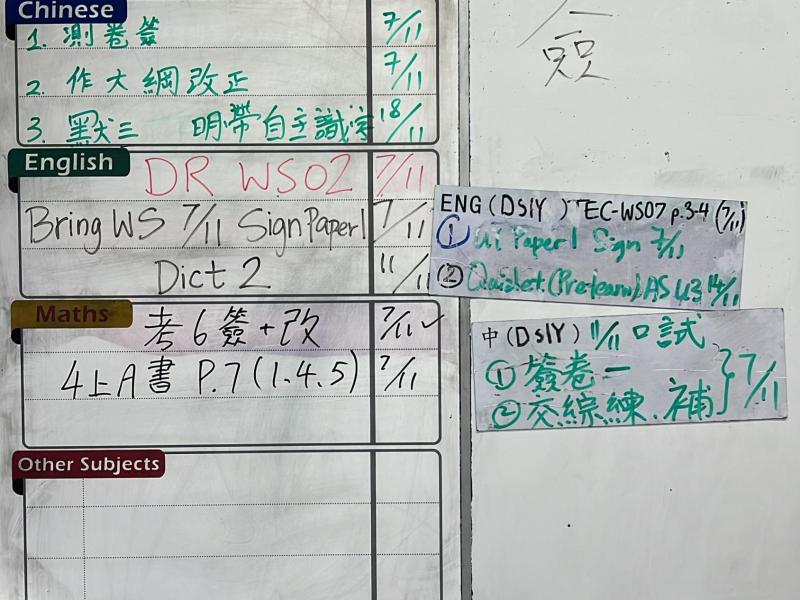 Chinese
1. 測卷簽 7/11
2. 作大綱改正 7/11
3. 默三 明帶自主識字 18/11
English
DR WS02 7/11
Bring WS 7/11 Sign Paper 1 7/11
Dict 2 11/11
Maths
考6簽+改 7/11 ✓
4上A書 P.7 (1.4.5) 7/11
Other Subjects
ENG (DS1Y ) EC-WS07 p.3-4 (7/11)
① Paper 1 Sign 7/11
② Quizlet (Pre-learn) AS U3 14/11
中 (DS1Y) 11/11 口試
① 簽卷一
② 交綜練.補 } 7/11